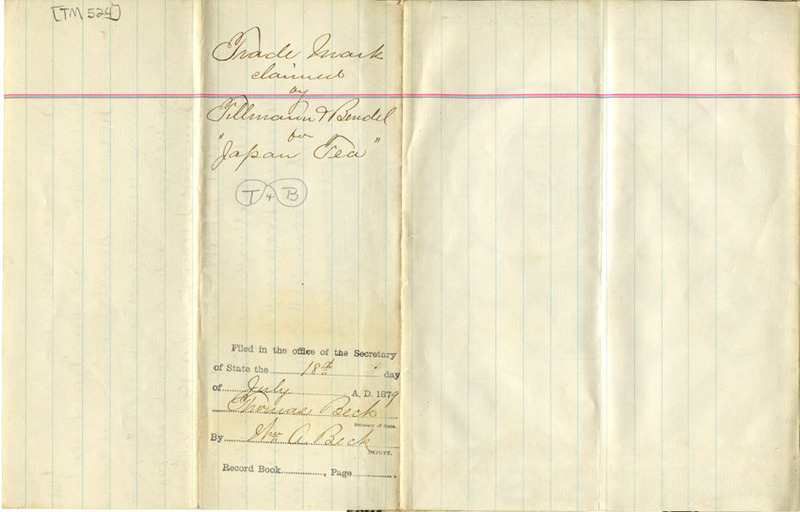 [TM 524]
Trade Mark
claimed
by
Tillmann & Bendel
for
"Japan Tea"
T & B
Filed in the office of the Secretary
of State the 18th day
of July A. D. 1879
Thomas Beck
Secretary of State.
By Wm A. Beck
DEPUTY.
Record Book............, Page............